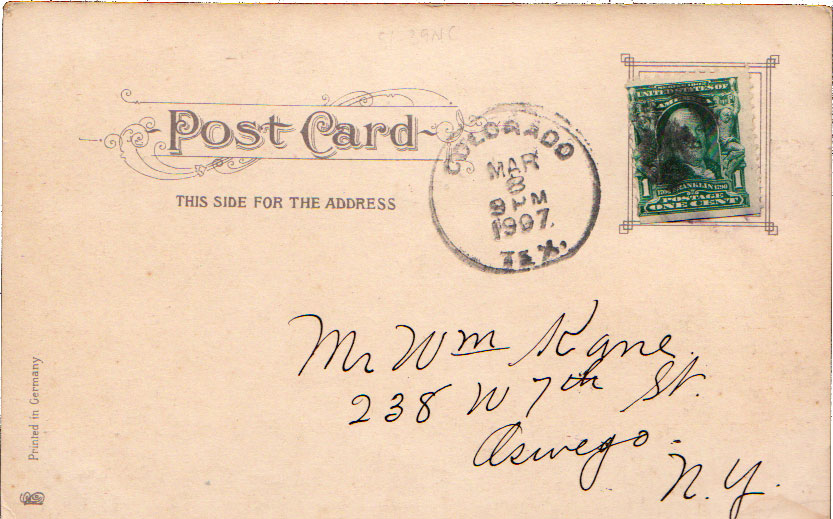 Post Card
THIS SIDE FOR THE ADDRESS
COLORADO
MAR
8
9 PM
1907.
TEX.
UNITED STATES OF
AMERICA
1 1706 FRANKLIN 1790 1
POSTAGE
ONE CENT
Mr Wm Kane
238 W 7th St.
Oswego.
N.Y.
Printed in Germany